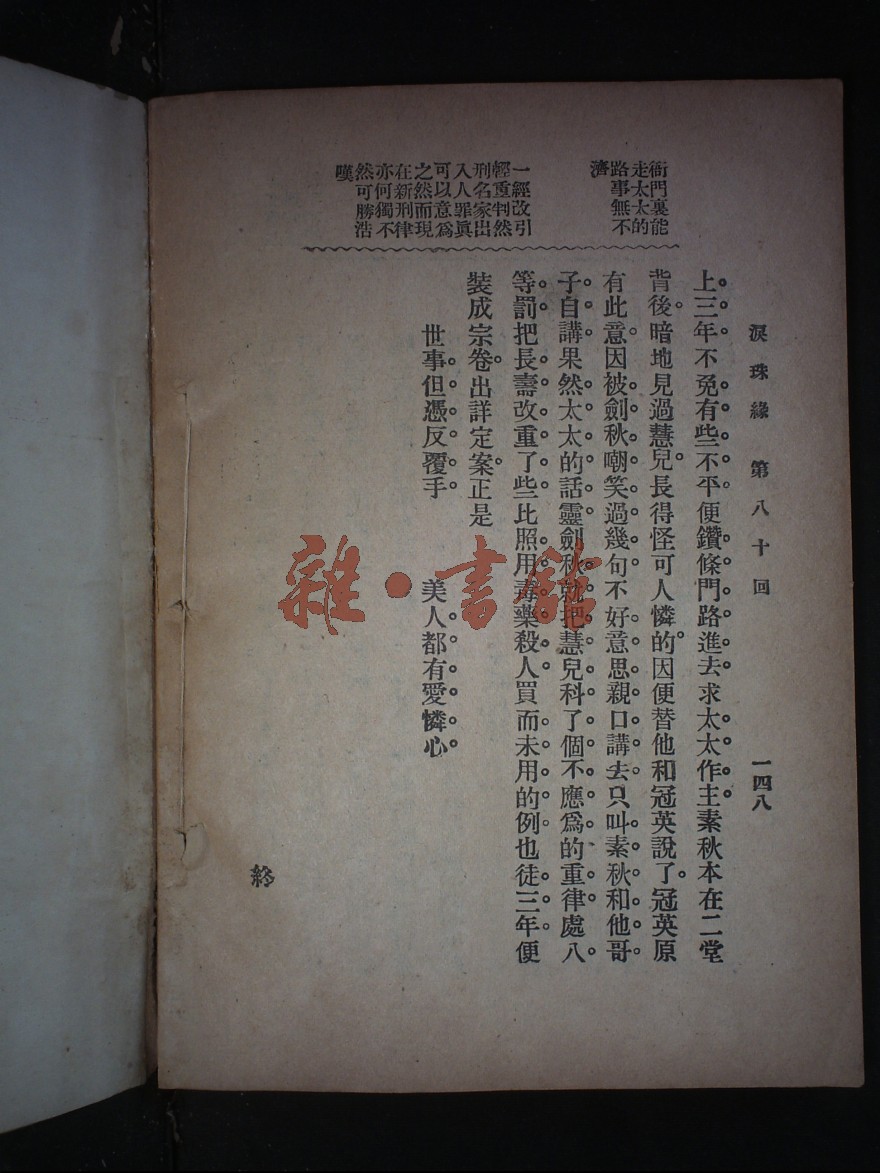 淚珠緣　第八十回　一四八
衙門裏能
走太太的
路事無不
濟
一經改引
輕重判然
刑名家出
入人罪眞
可以意爲
之然而現
在新刑律
亦何獨不
然可勝浩
嘆
上三年不免有些不平便鑽條門路進去求太太作主素秋本在二堂
背後暗地見過慧兒長得怪可人憐的因便替他和冠英說了冠英原
有此意因被劍秋嘲笑過幾句不好意思親口講去只叫素秋和他哥
子自講果然太太的話靈劍秋就把慧兒科了個不應爲的重律處八
等罰把長壽改重了些比照用毒藥殺人買而未用的例也徒三年便
裝成宗卷出詳定案正是
世事但憑反覆手　美人都有愛憐心
終
雜·書館